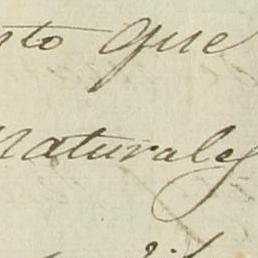 sto que
Naturales